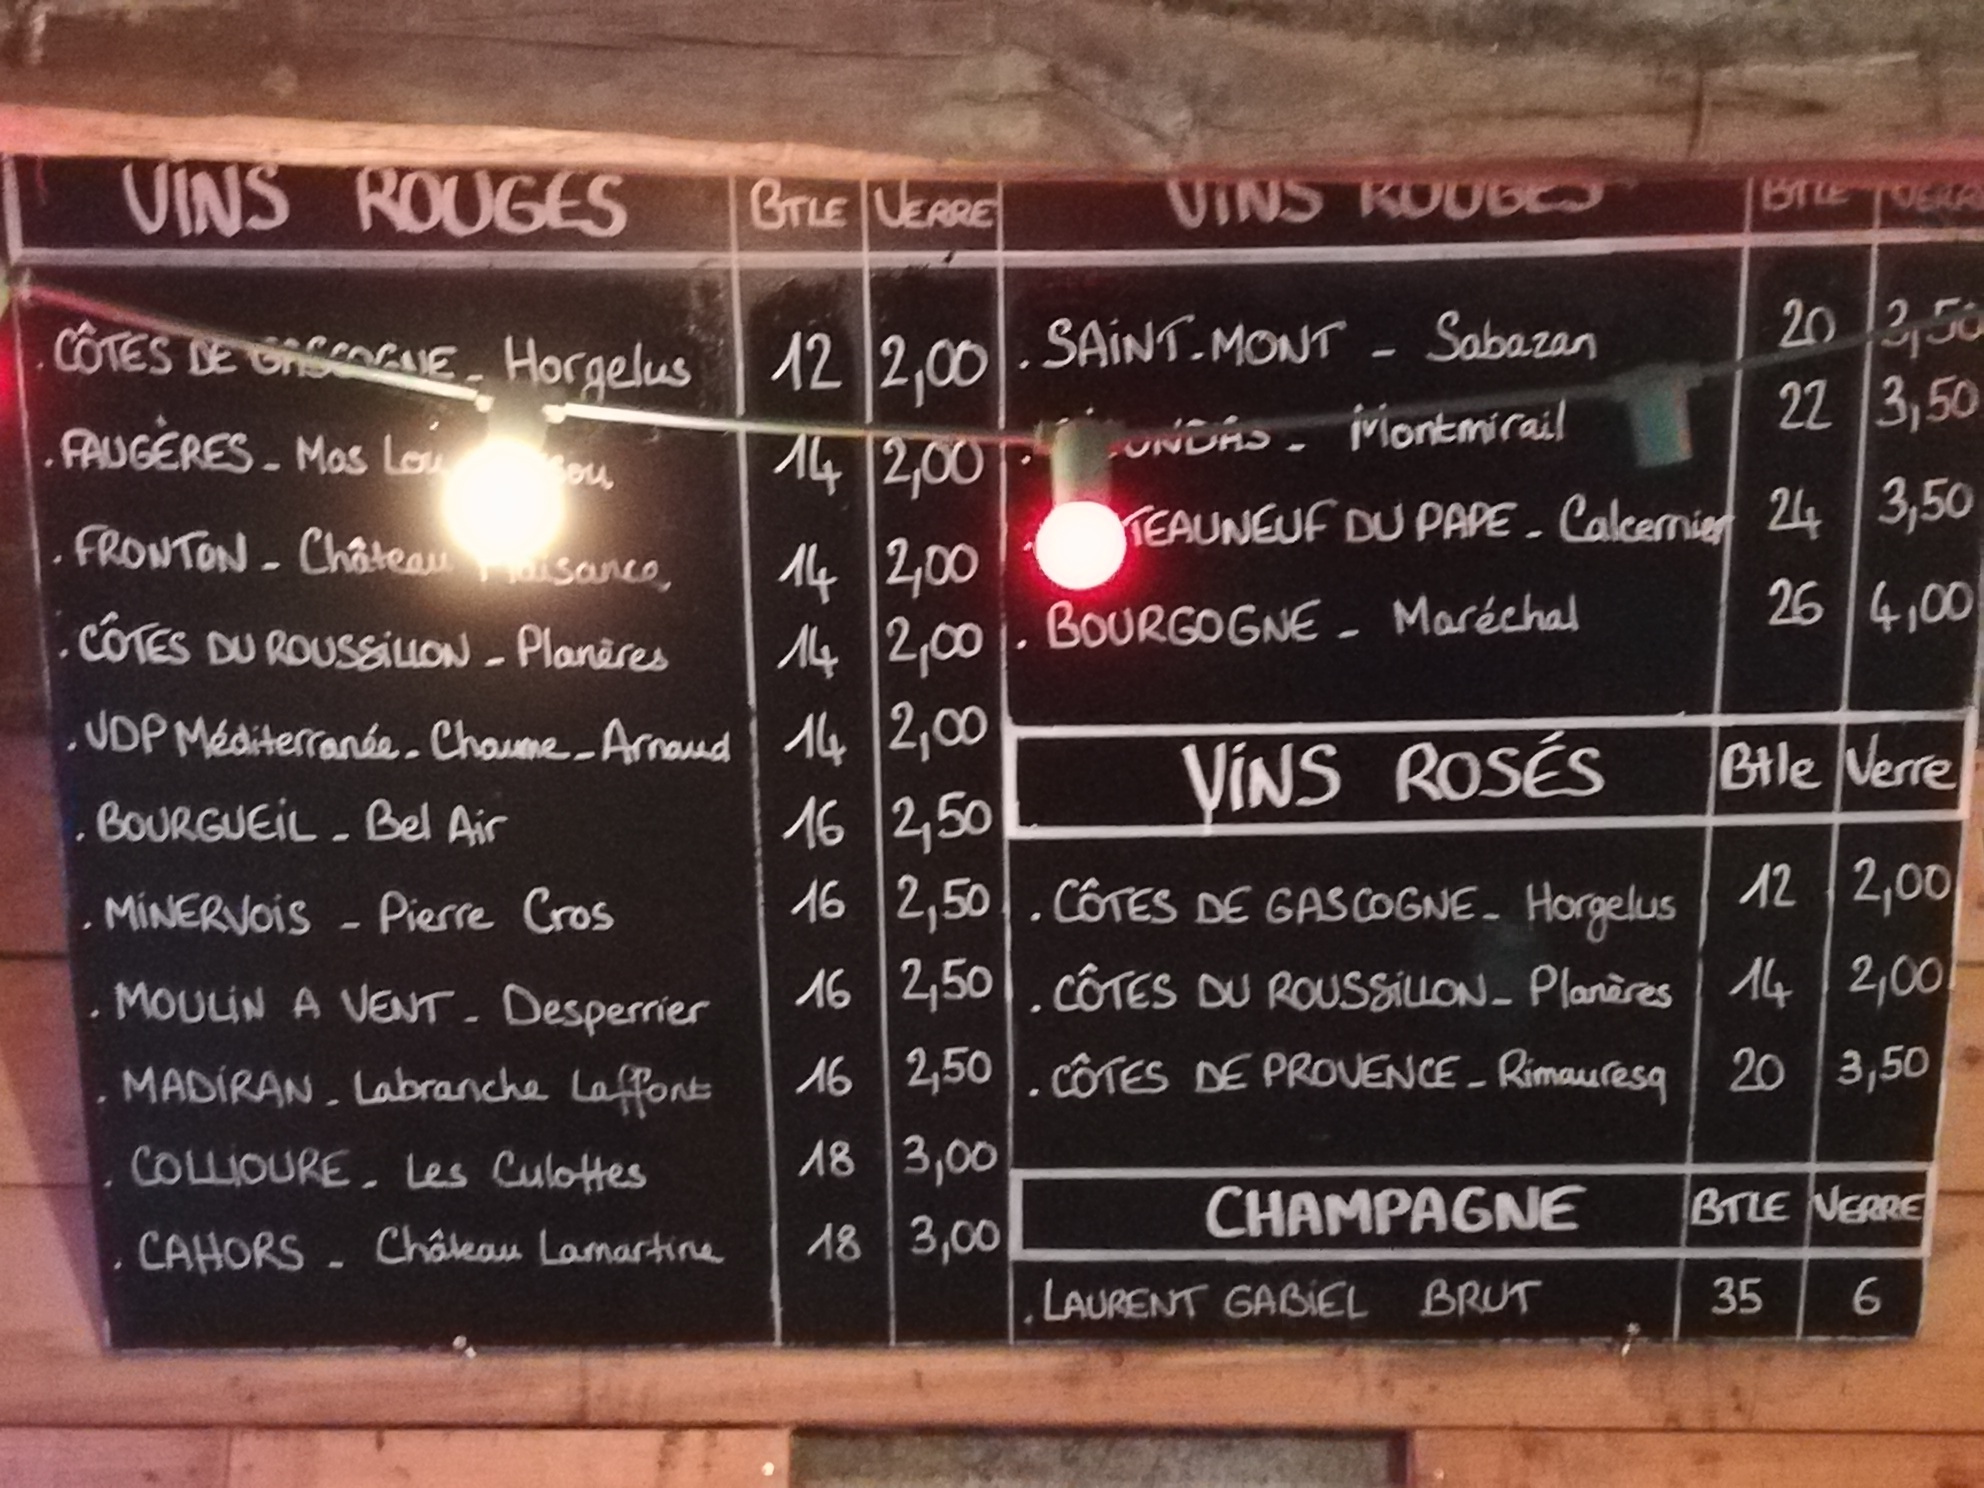 VINS ROUGES BTLE VERRE
. CÔTES DE GASCOGNE - Horgelus 12 2,00
. FAUGÈRES - Mas 14 2,00
. FRONTON - Château 14 2,00
. CÔTES DU ROUSSILLON - Planères 14 2,00
. VDP Méditerranée - Chaume - Arnaud 14 2,00
. BOURGUEIL - Bel Air 16 2,50
. MINERVOIS - Pierre Cros 16 2,50
. MOULIN A VENT - Desperrier 16 2,50
. MADIRAN - Labranche Laffont 16 2,50
. COLLIOURE - Les Culottes 18 3,00
. CAHORS - Château Lamartine 18 3,00
VINS ROUGES BTLE VERRE
. SAINT-MONT - Sabazan 20 3,50
. - Montmirail 22 3,50
. DU PAPE - Calcernier 24 3,50
. BOURGOGNE - Maréchal 26 4,00
VINS ROSÉS Btle Verre
. CÔTES DE GASCOGNE - Horgelus 12 2,00
. CÔTES DU ROUSSILLON - Planères 14 2,00
. CÔTES DE PROVENCE - Rimauresq 20 3,50
CHAMPAGNE BTLE VERRE
. LAURENT GABIEL BRUT 35 6